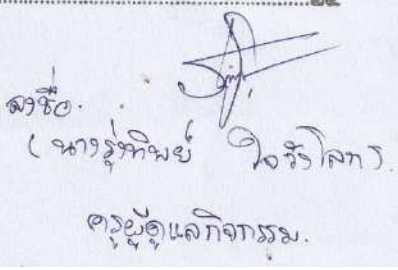 ลงชื่อ.
(นางรุ่งทิพย์
ครูผู้ดูแลกิจกรรม.